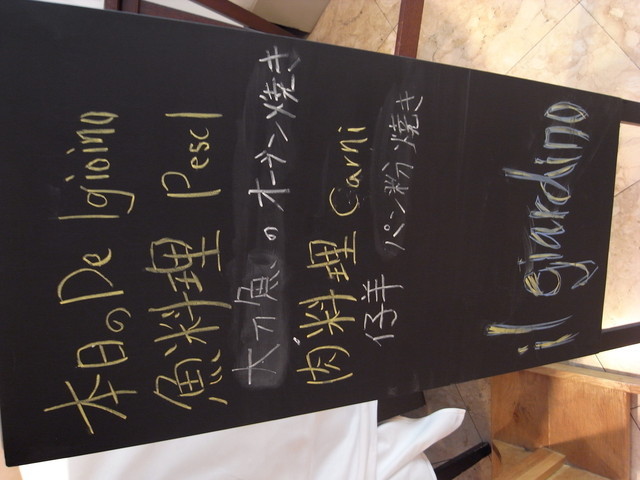 本日の De lgioino
魚料理 Pesci
太刀魚のオーブン焼き
肉料理 Carni
仔羊 パン粉焼き
il giardino